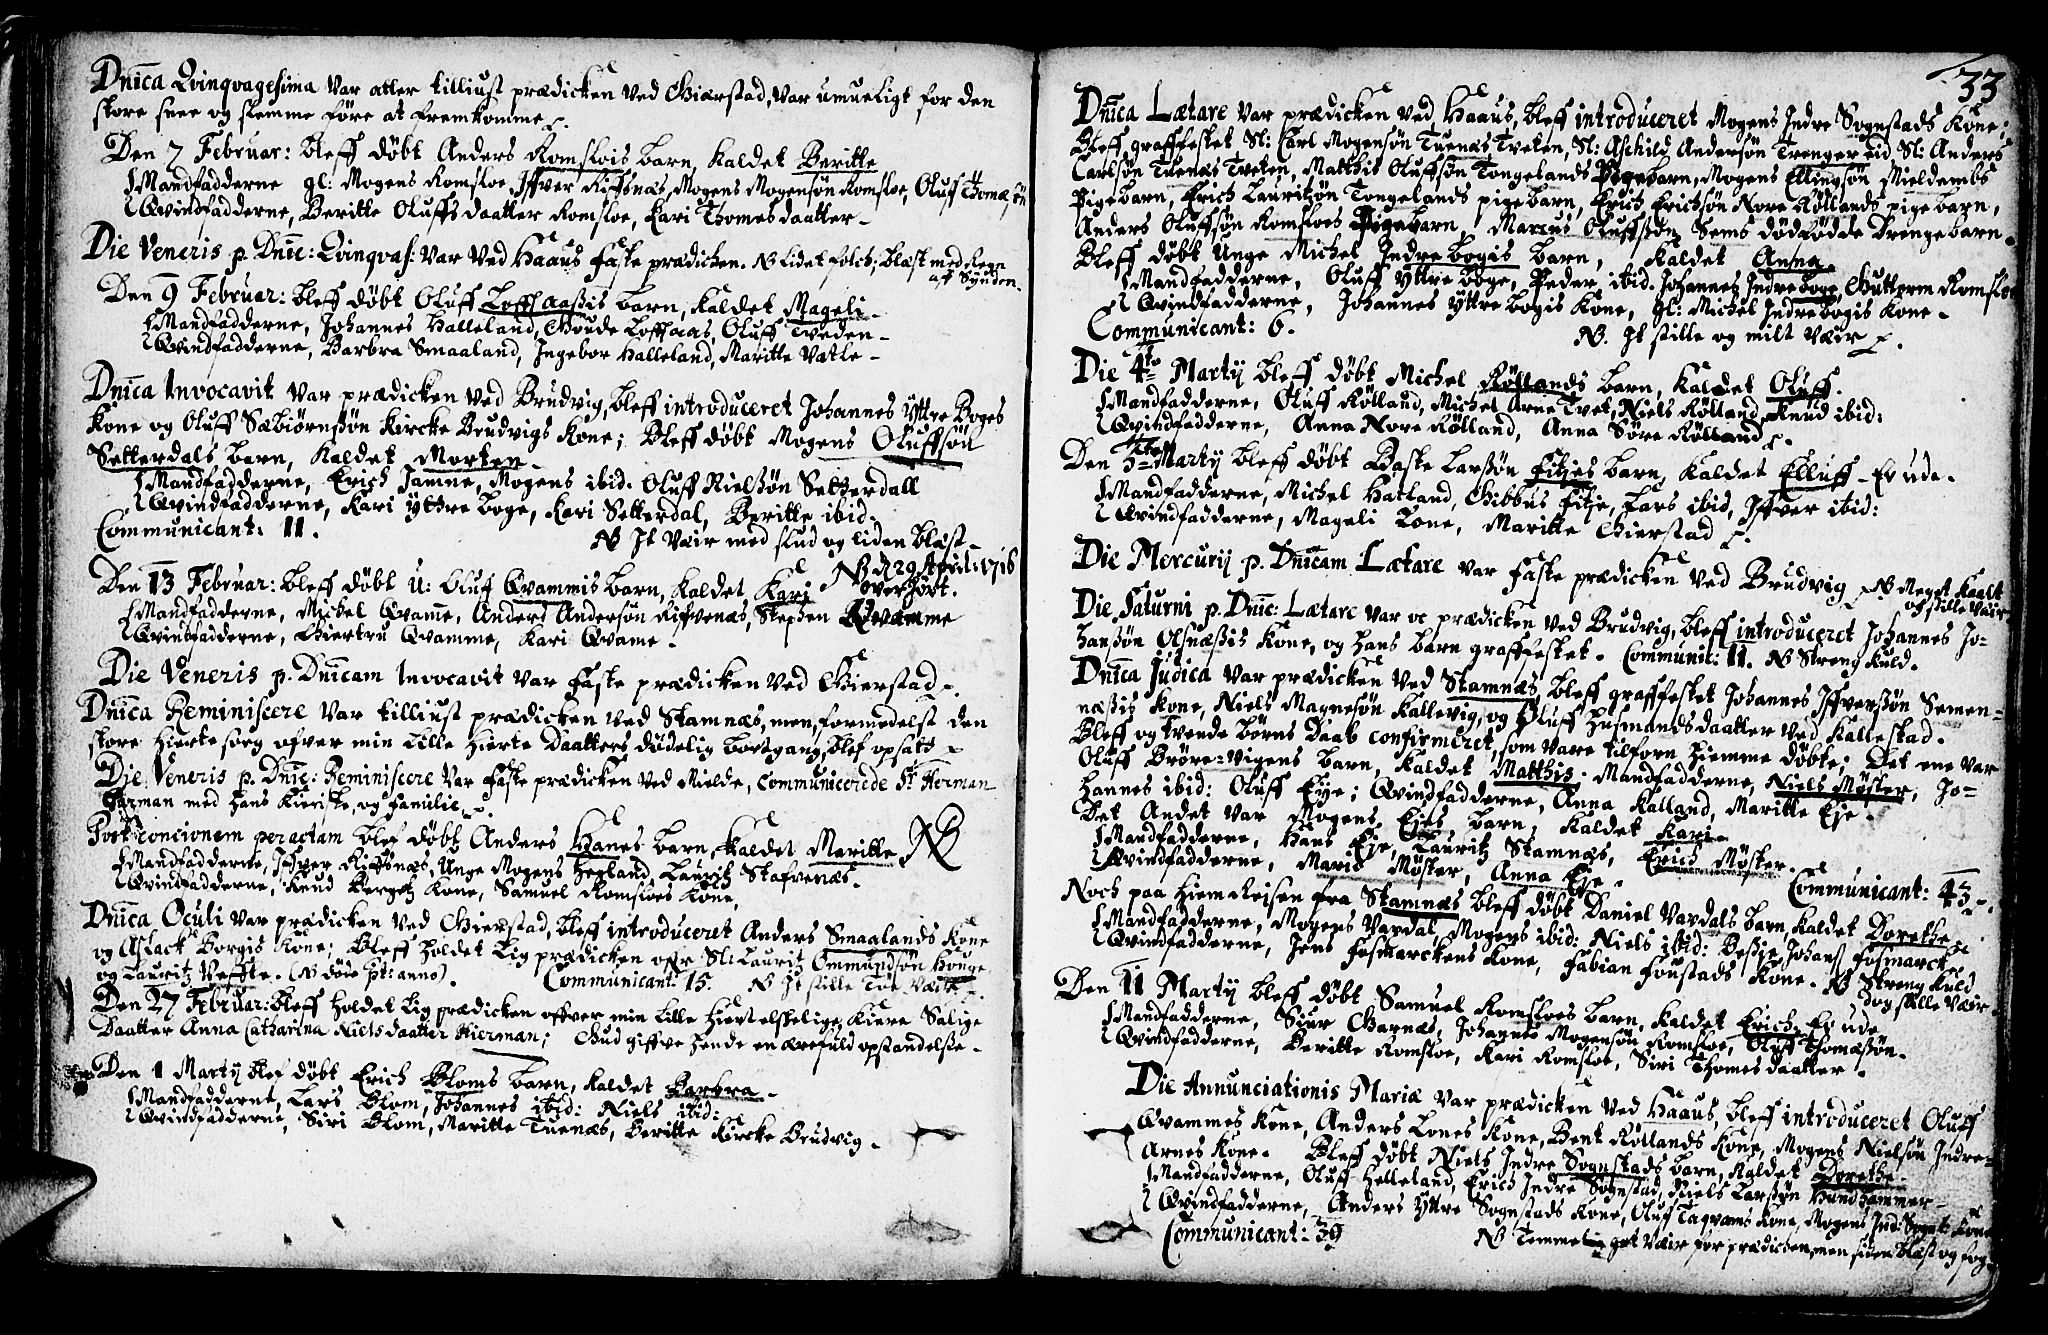 Dnica Qvinqvagesima var atter tilliust prædicken ved Gierstad, var umueligt for den
store snee og slemme före at fremkomme
Den 7 Februar: bleff döbt Anders Romslois barn, kaldet Beritte
Mandfadderne gl: Mogens Romsloe, Iffver Riffsnæs, Mogens Mogensön Romsloe, Oluf Thomæsön
Qvindfadderne, Beritte Oluffs daatter Romsloe, Kari Thomesdaatter
Die Veneris p. Dnic: Qvinqvag: var ved Haaus faste prædicken. NB lidet folck; blæst med Regn
aff Synden.
Den 9 Februar: bleff döbt Oluff Loffaasis barn, kaldet Mageli
Mandfadderne, Johannes Halleland, Goude Loffaas, Oluff Tveden
Qvindfadderne, Barbra Smaaland, Ingebor Halleland, Maritte Vatle
Dnica Invocavit var prædicken ved Brudvig, bleff introduceret Johannes Yttre Boges
Kone og Oluff Sæbiörnssön Kircke Brudvigs Kone; bleff döbt Mogens Oluffsön
Setterdals barn, kaldet Morten
Mandfadderne, Erich Jamne, Mogens ibid: Oluff Nielssön Setterdall
Qvindfadderne, Kari Yttre boge, Kari Setterdal, Beritte ibid:
Communicant: 11. NB It Vær med slud og liden blæst
Den 13 Februar: bleff döbt U: Oluf Qvammis barn, kaldet Kari NB d. 29 April: 1716
overhört.
Mandfadderne, Michel Qvame, Anders Andersön Riffvenæs, Stephen Qvamme
Qvindfadderne, Giertru Qvamme, Kari Qvame
Die Veneris p. Dnicam Invocavit var faste prædicken ved Gierstad
Dnica Reminiscere var tilliust prædicken ved Stamnæs, men formedelst den
store Hiertesorg ofver min lille Hierte daatters dödelig bortgang, blef opsatt
Die Veneris p. Dnic: Reminiscere var faste prædicken ved Mielde, communicerede Sr Herman
Garman med hans Kieriste, og familie
Post concionem peractam blef döbt Anders Hanes barn, kaldet Maritte NB
Mandfadderne, Iffver Riffsnæs, Unge Mogens Hegland, Lauritz Stafvenæs.
Qvindfadderne, Knud Bergetz Kone, Samuel Romsloes Kone,
Dnica Oculi var prædicken ved Gierstad, bleff introduceret Anders Smaalands Kone
og Aslack Borgis Kone; bleff holdet Lig prædicken offr Sl: Lauritz Ommundsön Houge
og Lauritz Veffte. (NB döde pt: anno). Communicant: 15. NB It stille Tör Vær
Den 27 Februar: bleff holdet Lig prædicken offver min lille Hiertelskelige Kiære Salige
Daatter Anna Catharina Nielsdaatter Hierman; Gud giffve hende en ærefuld opstandelse
Den 1 Martij blef döbt Erich Bloms barn, kaldet Barbra
Mandfadderne, Lars Blom, Johannes ibid: Niels ibid:
Qvindfadderne, Siri Blom, Maritte Tuenæs, Beritte Kircke Brudvig
33
Dnica Lætare var prædicken ved Haaus, bleff introduceret Mogens Indre Sognstads Kone;
Bleff graffestet Sl: Carl Mogensön Tuenæs Tveten, Sl: Aschild Andersön Trengereid Sl: Anders
Carlsön Tuenæs Tveten, Matthis Oluffsön Tongelands Pigebarn, Mogens Ellingsön Mieldembs
Pigebarn, Erich Lauritzön Tongelands pigebarn, Erich Erichsön Nore Röllands pigebarn,
Anders Oluffsön Romsloes Pigebarn, Marcus Oluffsön Sems dödfödde Drengebarn.
Bleff döbt Unge Michel Indrebogis barn, kaldet Anna
Mandfadderne, Oluff Yttre boge, Peder ibid: Johannes Indreboge, Guttorm Romsloe
Qvindfadderne, Johannes Yttre bogis Kone, gl: Michel Indrebogis Kone
Communicant: 6. NB. It stille og milt Vær
Die 4to Martij bleff döbt Michel Röllands barn, kaldet Oluff.
Mandfadderne, Oluff Rölland, Michel Arne Tvet, Niels Rölland, Knud ibid:
Qvindfadderne, Anna Nore Rölland, Anna Söre Rölland
Den 5te Martij bleff döbt Baste Larssön Fitjes barn, kaldet Elluff
Mandfadderne, Michel Hatland, Gibbus Fitje, Lars ibid, Iffver ibid:
Qvindfadderne, Mageli Tone, Maritte Gierstad
Die Mercurij p. Dnicam Lætare var faste prædicken ved Brudvig NB Meget Kaalt
og stille Vær
Die Saturni p. Dnic: Lætare var oc prædicken ved Brudvig, bleff introduceret Johannes Jo-
hanssön Olsnæssis Kone, og hans barn graffestet. Communic: 11. NB Streng Kuld.
Dnica Judica var prædicken ved Stamnæs, bleff graffestet Johannes Iffverssön Semen-
næssis Kone, Niels Magnesön Kallevig, og Oluff Husmands daatter ved Kallestad.
Bleff og tvende börns daab confirmeret, som vare tilforn hiemme döbte; Det ene var
Oluff Bröre-Vigens barn, kaldet Matthis. Mandfadderne, Niels Möster, Jo-
hannes ibid: Oluff Eye; Qvindfadderne, Anna Kalland, Maritte Eje.
Det Andet var Mogens Ejes barn, kaldet Kari
Mandfadderne, Hans Eje, Lauritz Stamnæs, Erich Möster.
Qvindfadderne, Marid Möster, Anna Eje. Communicant: 43
Noch paa Hiem Reisen fra Stamnæs bleff döbt Daniel Vardals barn, kaldet Dorethe
Mandfadderne, Mogens Vardal, Mogens ibid: Niels ibid:
Qvindfadderne, Jens Fosmarckens Kone, Fabian Foustads Kone. NB Streng Kuld
dog stille Vær.
Den 11 Martij bleff döbt Samuel Romsloes barn, kaldet Erich
Mandfadderne, Siur Garnæs, Johannes Mogensön Romsloe, Oluff Thomassön.
Qvindfadderne, Beritte Romsloe, Kari Romsloe, Siri Thomesdaatter.
Die Annunciationis Mariæ var prædicken ved Haaus, bleff introduceret Oluff
Qvammes Kone, Anders Lones Kone, Bent Röllands Kone, Mogens Nielsön Indre-
Arnes Kone. Bleff döbt Niels Indre Sognstads barn, kaldet Dorethe
Mandfadderne, Oluff Helleland, Erich Indre Sognstad, Niels Larssön Hundhammer
Qvindfadderne, Anders Yttre Sognstads Kone, Oluff Taqvams Kone, Mogens Ind: Sognst: Kone
Communicant: 39 NB Temmelig got Vær for prædicken, men siden blæst og fog